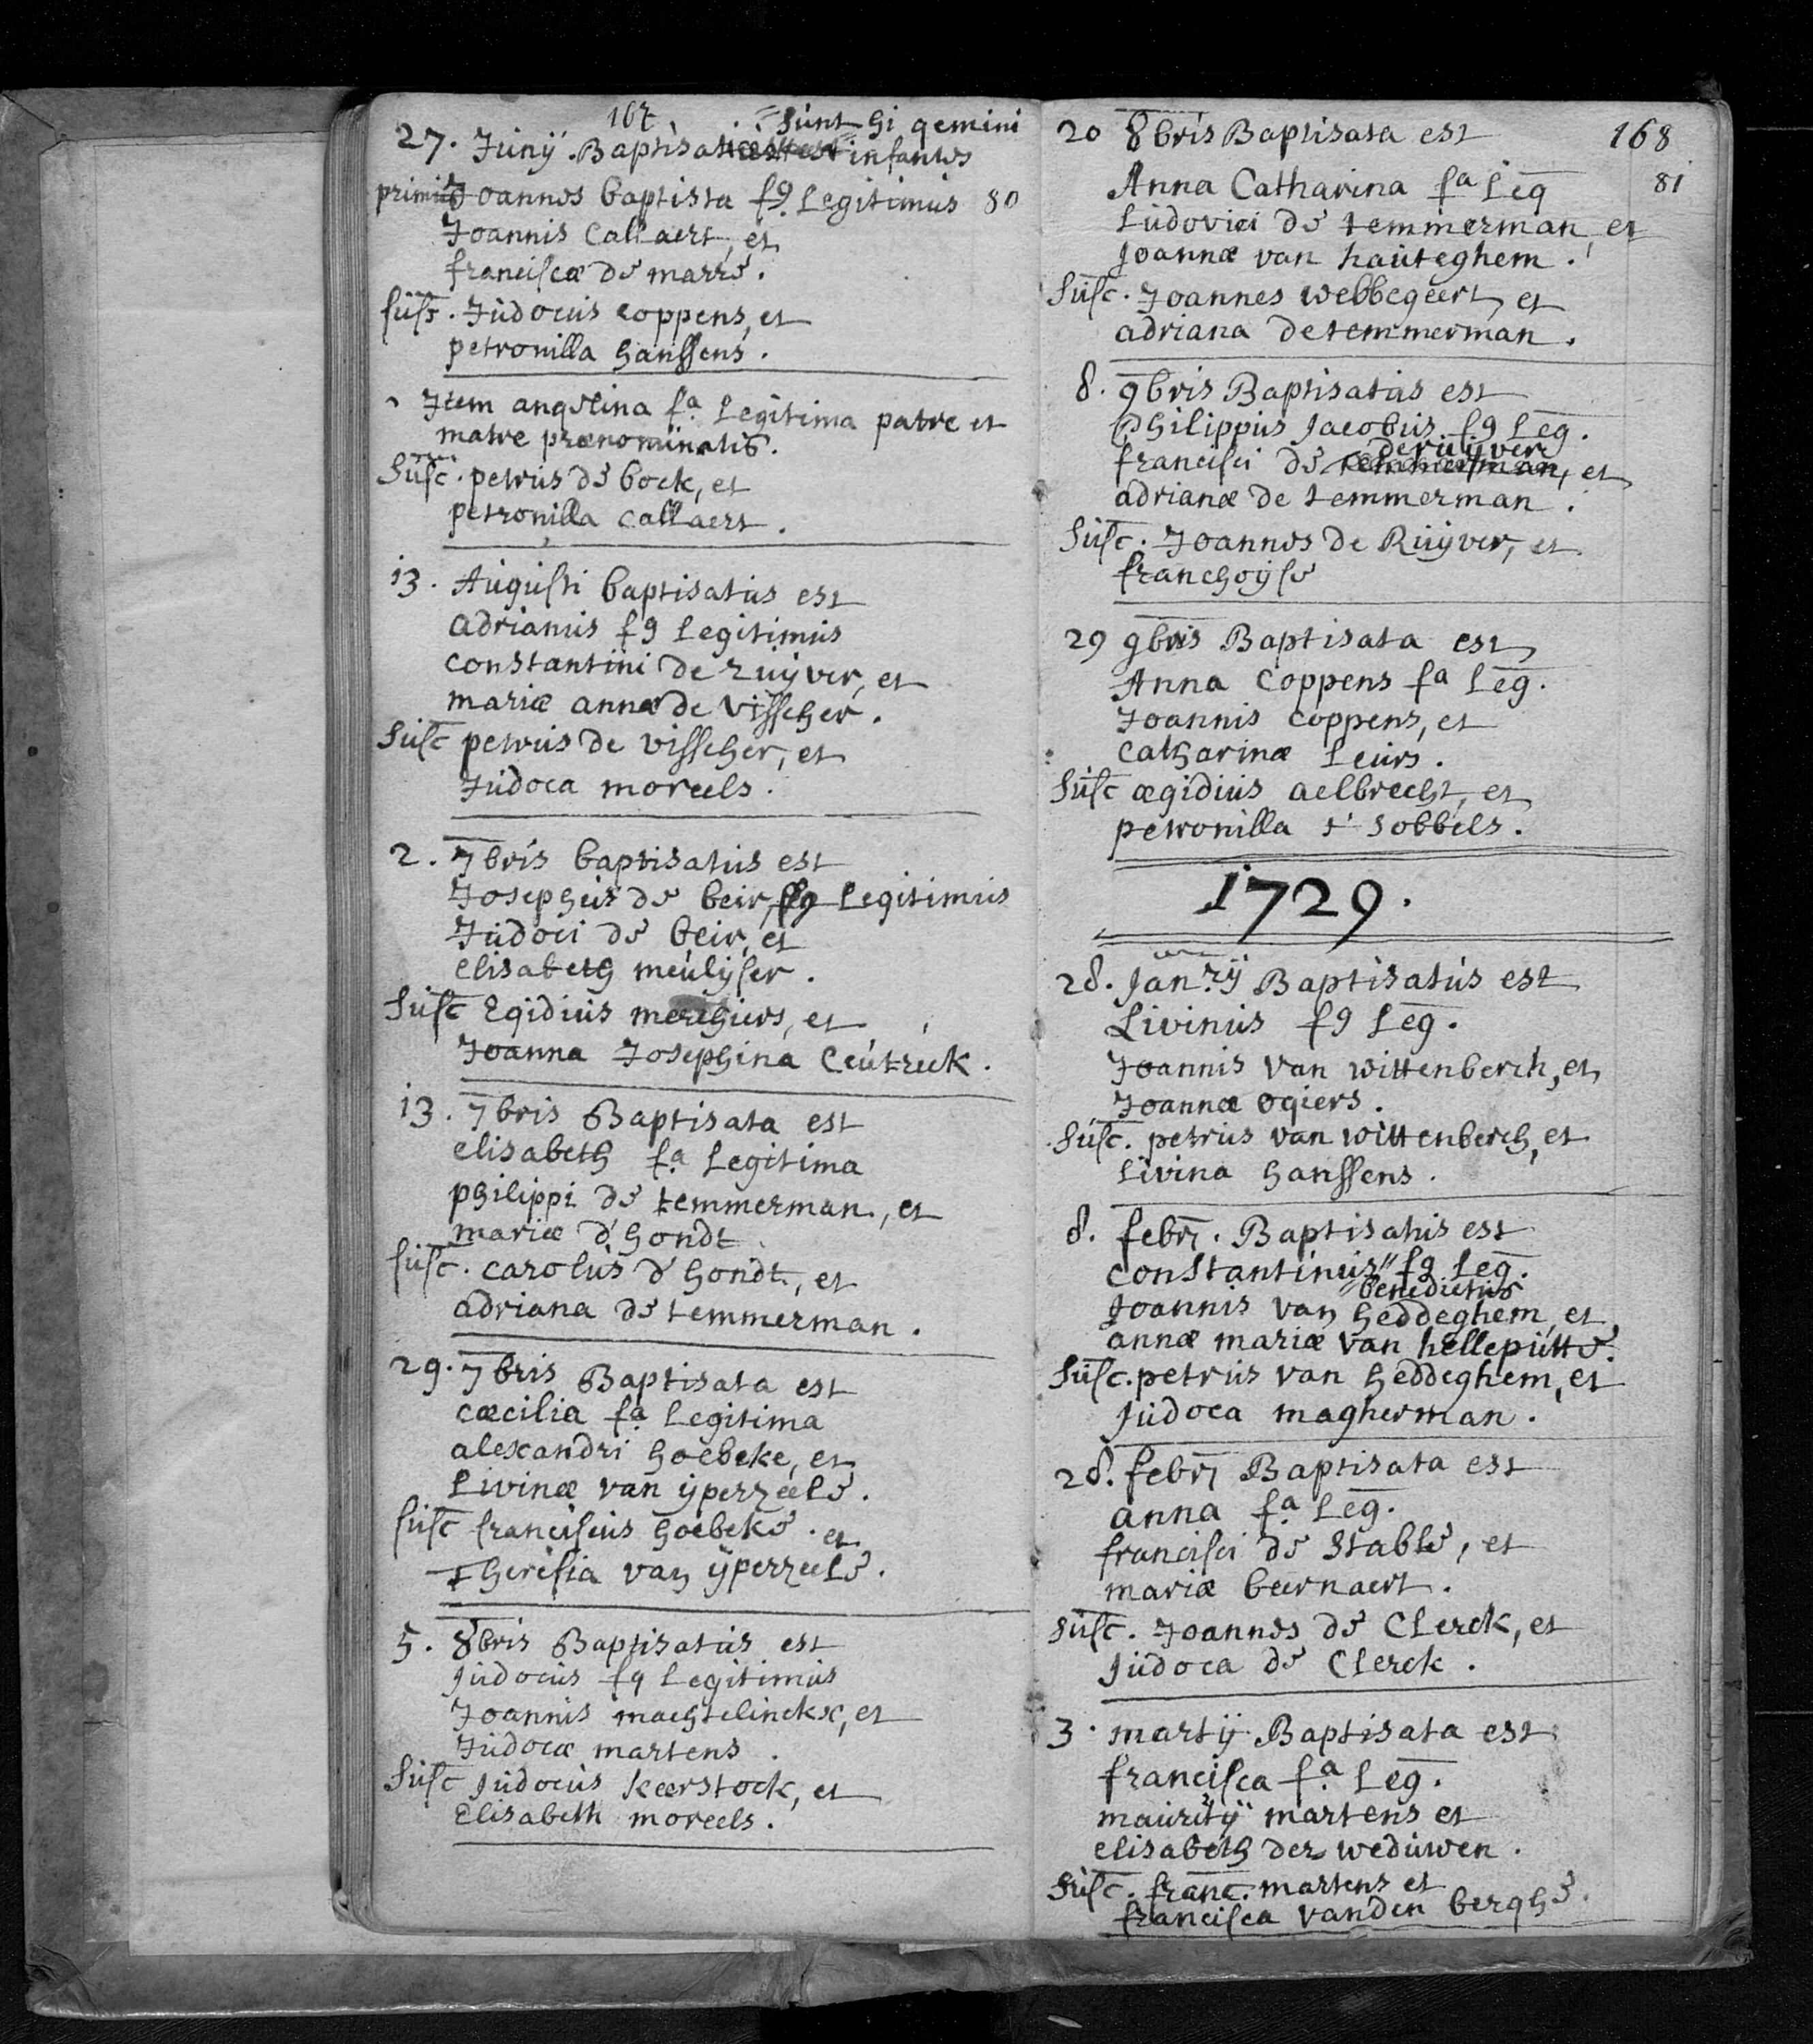 167
sunt hi gemini
27. Junij. Baptisati infantes
primus Joannes baptista f9 Legitimus 80
Joannis Callaert, et
franciscæ de marre.
susc. Judocus coppens, et
petronilla hanssens.
Item angelina fa Legitima patre et
matre prænominatis.
Susc. petrus de bock, et
petronilla callaert.
13. Augusti baptisatus est
adrianus f9 Legitimus
constantini de ruijver, et
mariæ annæ de visscher.
Susc petrus de visscher, et
Judoca moreels.
2. 7bris baptisatus est
Josephus de beir, f9 Legitimus
Judoci de beir, et
elisabeth meulijser.
Susc Egidius, et
Joanna Josephina Ceutreck.
13. 7bris Baptisata est
elisabeth fa Legitima
philippi de temmerman, et
mariæ d'hondt
susc. carolus d'hondt, et
adriana de temmerman.
29. 7bris Baptisata est
cæcilia fa Legitima
alexandri hoebeke, et
Livinæ van ijperzeele.
susc franciscus hoebeke. et
Theresia van ijperzeele.
5. 8bris Baptisatus est
Judocus f9 Legitimus
Joannis machtelinckx, et
Judocæ martens.
Susc Judocus keerstock, et
Elisabeth moreels.
20 8bris Baptisata est 168
Anna Catharina fa Leg 81
Ludovici de temmerman, et
Joannæ van hauteghem.
Susc. Joannes webbegeert, et
adriana detemmerman.
8. 9bris Baptisatus est
Philippus Jacobus f9 Leg.
deruijver
francisci de temmerman, et
adrianæ de temmerman.
Susc. Joannes de Ruijver, et
franchoijse
29 9bris Baptisata est
Anna Coppens fa Leg.
Joannis coppens, et
catharinæ Leurs.
Susc ægidius aelbrecht, et
petronilla s' sobbels.
1729.
28. Janrij Baptisatus est
Livinus f9 Leg.
Joannis van wittenberch, et
Joannæ ogiers.
Susc. petrus van wittenberch, et
Livina hanssens.
8. febr. Baptisatus est
constantinus" f9 Leg.
benedictus
Joannis van heddeghem, et
annæ mariæ van helleputte.
Susc. petrus van heddeghem, et
Judoca magherman.
28. febr Baptisata est
anna fa Leg.
francisci de Stable, et
mariæ beernaert.
Susc. Joannes de Clerck, et
Judoca de Clerck.
3. martij Baptisata est
francisca fa Leg.
mauritij martens et
elisabeth der weduwen.
Susc. franc. martens et
francisca vanden berghe.